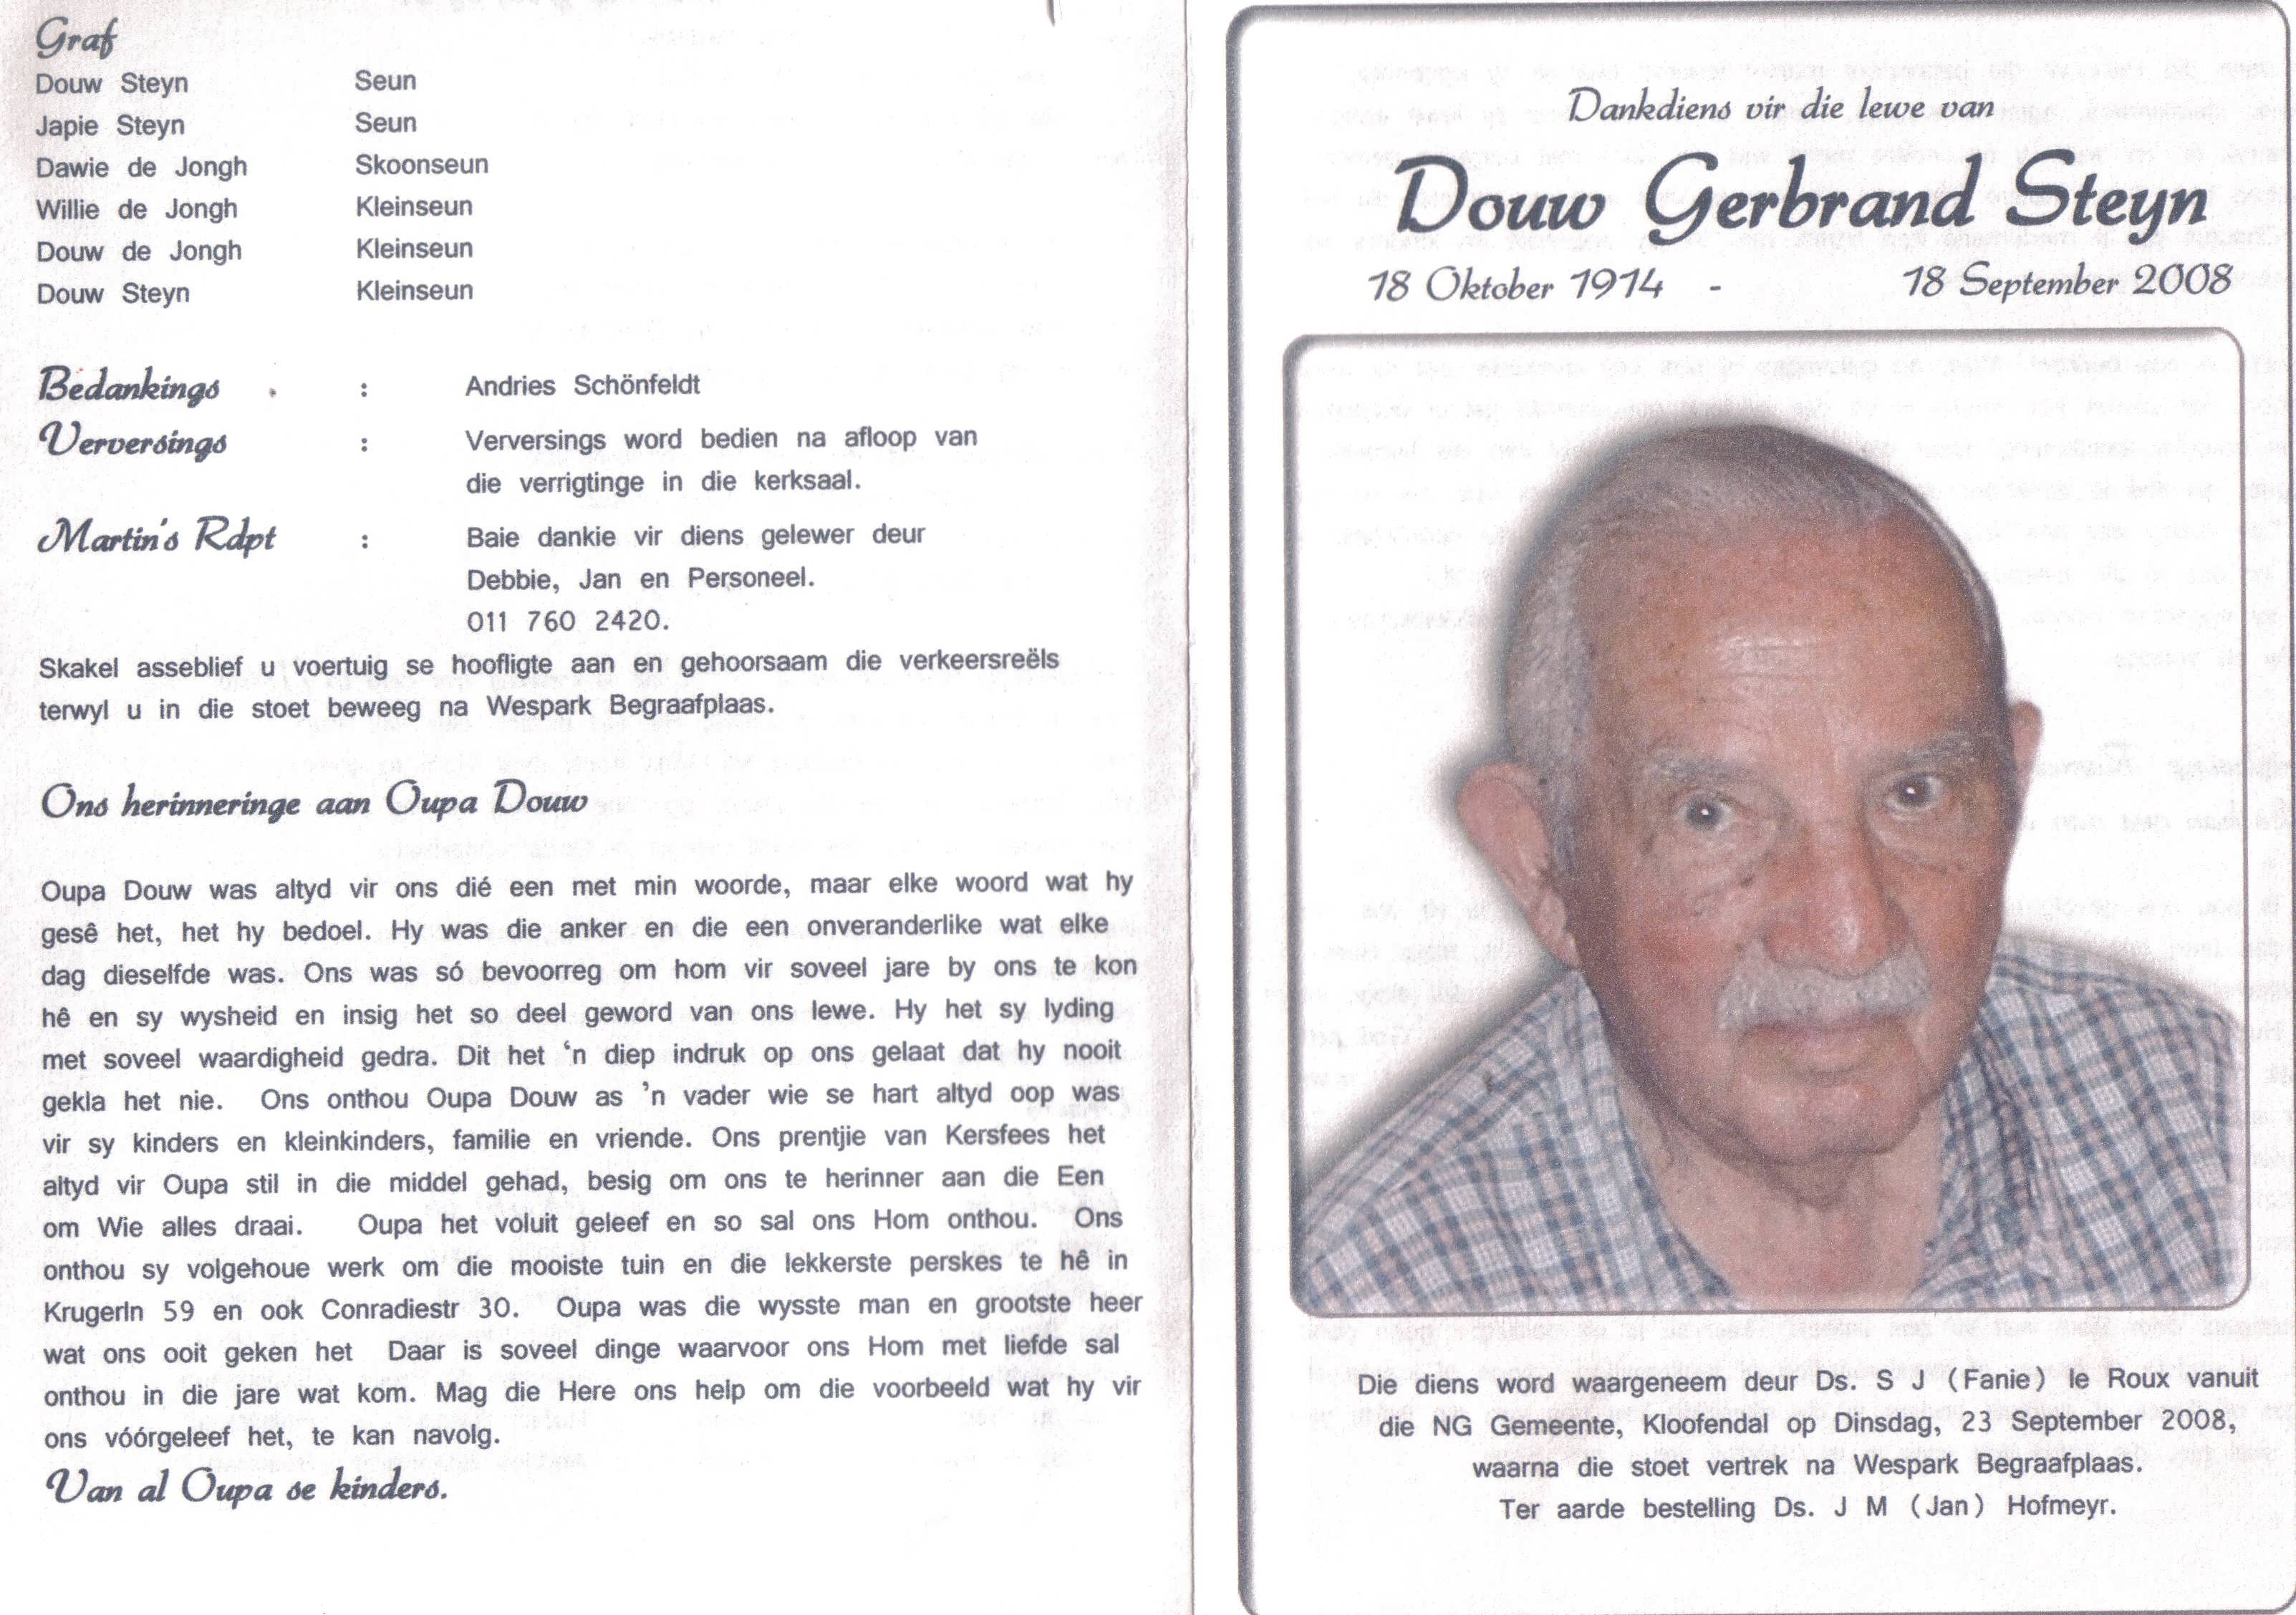 Graf
Douw Steyn Seun
Japie Steyn Seun
Dawie de Jongh Skoonseun
Willie de Jongh Kleinseun
Douw de Jongh Kleinseun
Douw Steyn Kleinseun
Bedankings : Andries Schönfeldt
Verversings : Verversings word bedien na afloop van
die verrigtinge in die kerksaal.
Martin's Rdpt : Baie dankie vir diens gelewer deur
Debbie, Jan en Personeel.
011 760 2420.
Skakel asseblief u voertuig se hoofligte aan en gehoorsaam die verkeersreëls
terwyl u in die stoet beweeg na Wespark Begraafplaas.
Ons herinneringe aan Oupa Douw
Oupa Douw was altyd vir ons dié een met min woorde, maar elke woord wat hy
gesê het, het hy bedoel. Hy was die anker en die een onveranderlike wat elke
dag dieselfde was. Ons was só bevoorreg om hom vir soveel jare by ons te kon
hê en sy wysheid en insig het so deel geword van ons lewe. Hy het sy lyding
met soveel waardigheid gedra. Dit het ‘n diep indruk op ons gelaat dat hy nooit
gekla het nie. Ons onthou Oupa Douw as ’n vader wie se hart altyd oop was
vir sy kinders en kleinkinders, familie en vriende. Ons prentjie van Kersfees het
altyd vir Oupa stil in die middel gehad, besig om ons te herinner aan die Een
om Wie alles draai. Oupa het voluit geleef en so sal ons Hom onthou. Ons
onthou sy volgehoue werk om die mooiste tuin en die lekkerste perskes te hê in
Krugerln 59 en ook Conradiestr 30. Oupa was die wysste man en grootste heer
wat ons ooit geken het Daar is soveel dinge waarvoor ons Hom met liefde sal
onthou in die jare wat kom. Mag die Here ons help om die voorbeeld wat hy vir
ons vóórgeleef het, te kan navolg.
Van al Oupa se kinders.
Dankdiens vir die lewe van
Douw Gerbrand Steyn
18 Oktober 1914 - 18 September 2008
Die diens word waargeneem deur Ds. S J (Fanie) le Roux vanuit
die NG Gemeente, Kloofendal op Dinsdag, 23 September 2008,
waarna die stoet vertrek na Wespark Begraafplaas.
Ter aarde bestelling Ds. J M (Jan) Hofmeyr.